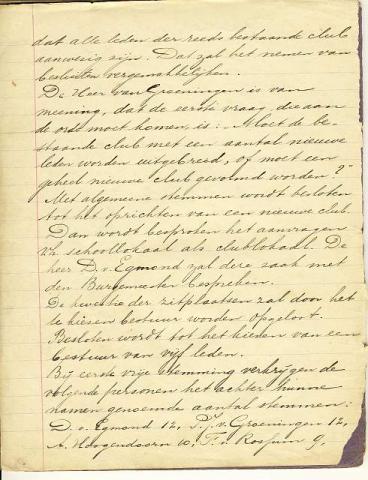 dat alle leden der reeds bestaande club
aanwezig zijn. Dat zal het nemen van
besluiten vergemakkelijken.
De Heer van Groeningen is van
meening, dat de eerste vraag, die aan
de orde moet komen, is: Moet de be-
staande club met een aantal nieuwe
leden worden uitgebreid, of moet een
geheel nieuwe club gevormd worden?"
Met algemeene stemmen wordt besloten
tot het oprichten van een nieuwe club.
Dan wordt besproken het aanvragen
v.h. schoollokaal als clublokaal. De
heer D. v. Egmond zal deze zaak met
den Burgemeester bespreken.
De kwestie der zitplaatsen zal door het
te kiezen bestuur worden opgelost.
Besloten wordt tot het kiezen van een
bestuur van vijf leden.
Bij eerste vrije stemming verkrijgen de
volgende personen het achter hunne
namen genoemde aantal stemmen:
D. v. Egmond 12, P. J. v. Groeningen 12,
A. Hoogendoorn 10, T. v. Rossum 9,